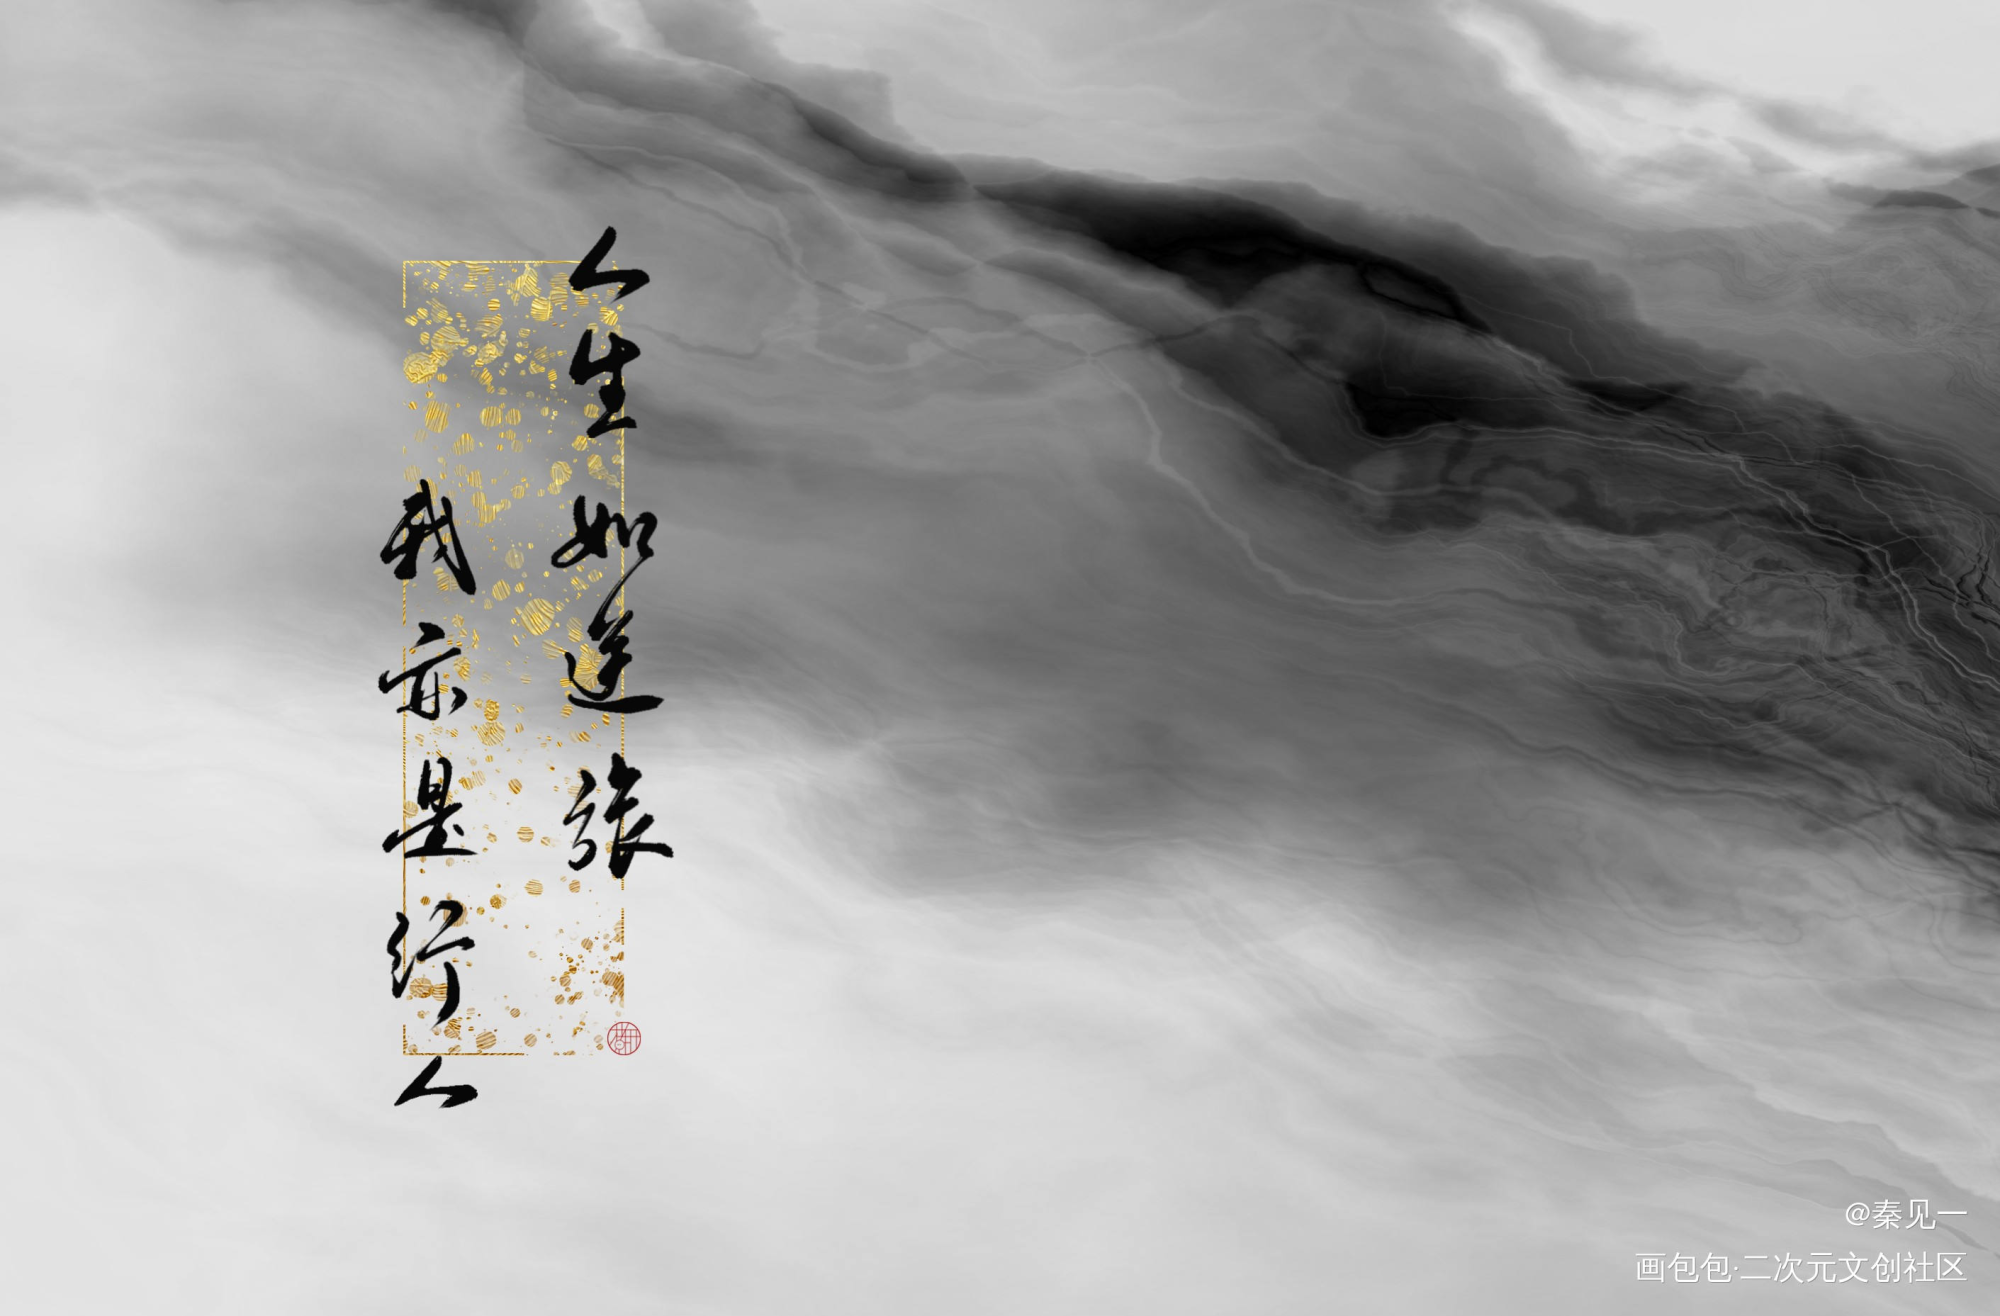 人生如送張
我亦是行人
@秦见一
画包包·二次元文创社区